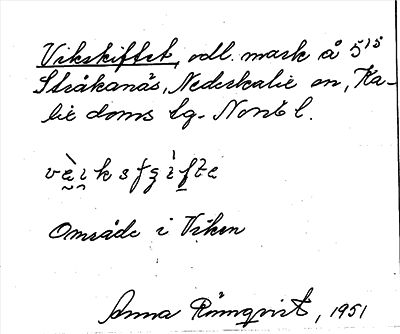 Vikskiftet, odl. mark å 5¹⁵
Stråkanäs, Nederkalix sn, Ka-
lix doms lg. Nortb l.
Område i Viken
Anna Rönnqvist, 1951